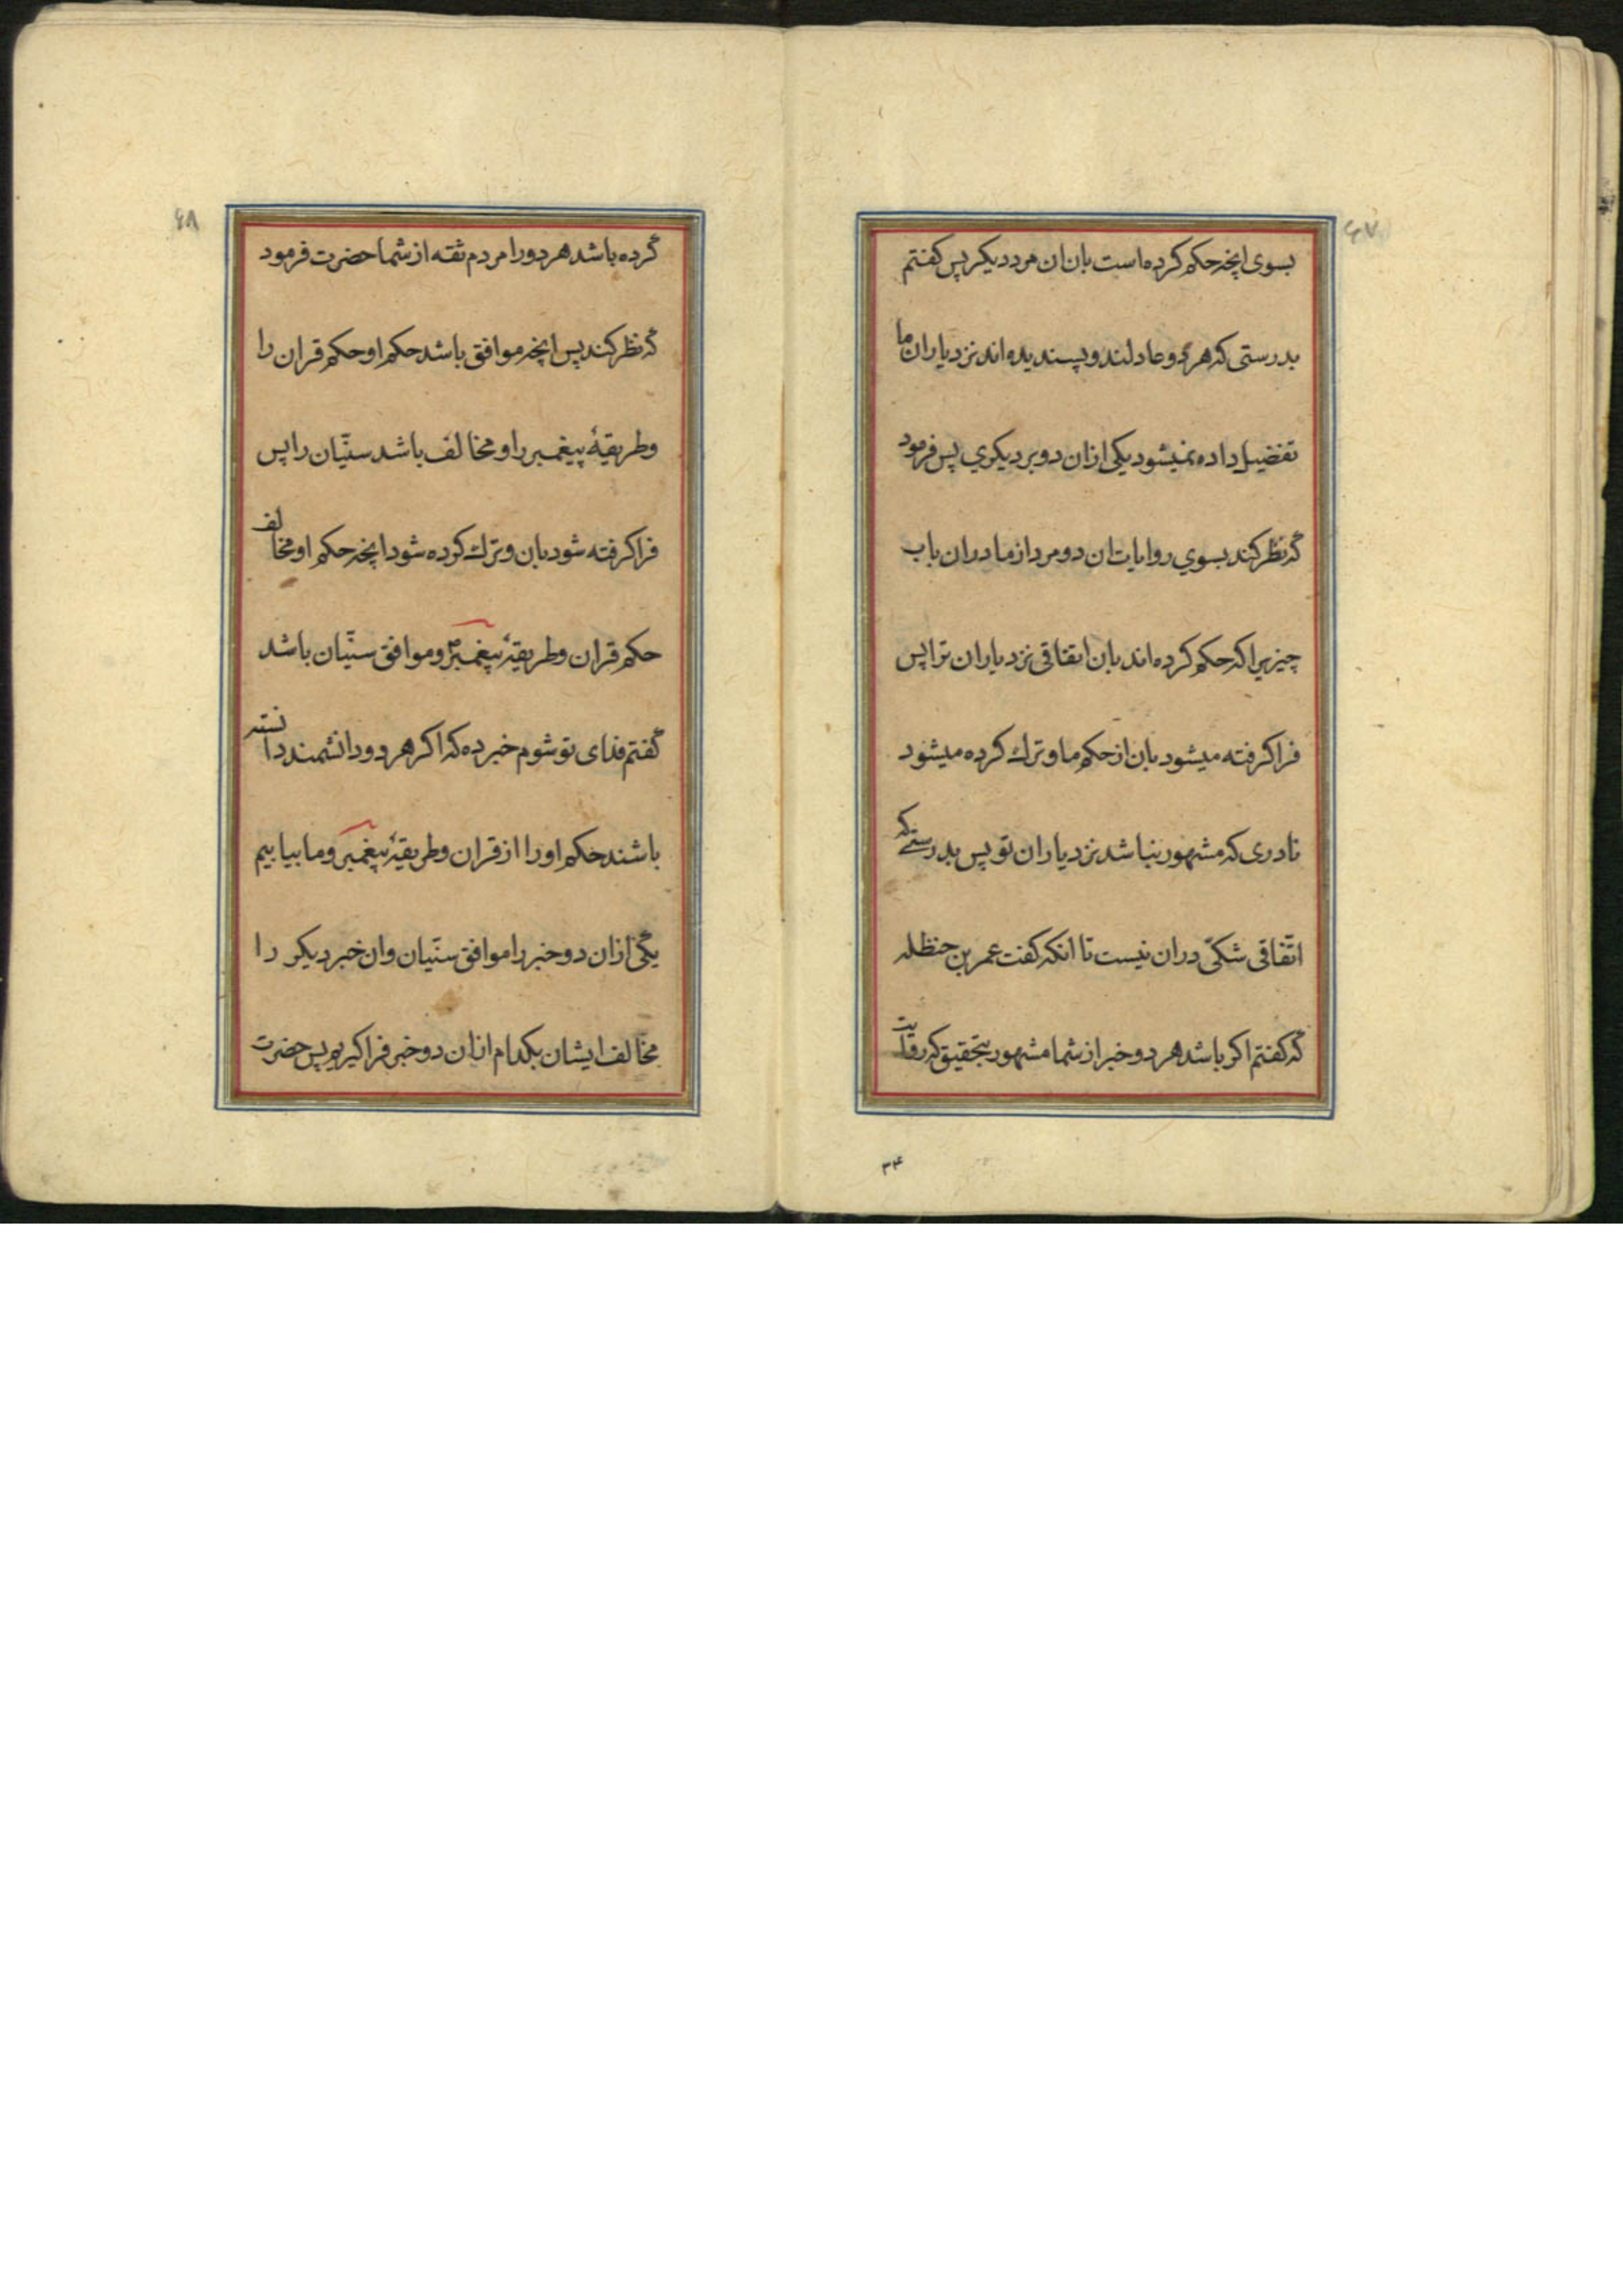 ۶۷
بسوی انچه حکم کرده است بان ان مرد دیکر پس کفتم
بدرستی که هر دو عادلند و پسندیده اند نزد یاران ما
تفضیل داده نمیشود یکی ازان دو بر دیکری پس فرمود
که نظر کند بسوی روایات ان دو مرد از ما دران باب
چیزیرا که حکم کرده اند بان اتفاقی نزد یاران تو پس
فرا کرفته میشود بان از حکم ما و ترک کرده میشود
نادری که مشهور نباشد نزد یاران تو پس بدرستی که
اتّفاقی شکّی دران نیست تا انکه کفت عمر بن حنظله
که کفتم اکر باشد هر دو خبر از شما مشهور بتحقیق که روایت
۳۴
۶۸
کرده باشد هر دو را مردم ثقه از شما حضرت فرمود
که نظر کند پس انچه موافق باشد حکم او حکم قران را
و طریقهٔ پیغمبر را و مخالف باشد سنّیان را پس
فرا کرفته شود بان و ترک کرده شود انچه حکم او مخالف
حکم قران و طریقهٔ پیغمبر و موافق سنّیان باشد
کفتم فدای تو شوم خبر ده که اکر هر دو دانشمند دانسته
باشند حکم او را از قران و طریقهٔ پیغمبر و ما بیابیم
یکی ازان دو خبر را موافق سنّیان و ان خبر دیکر را
مخالف ایشان بکدام ازان دو خبر فرا کیریم پس حضرت